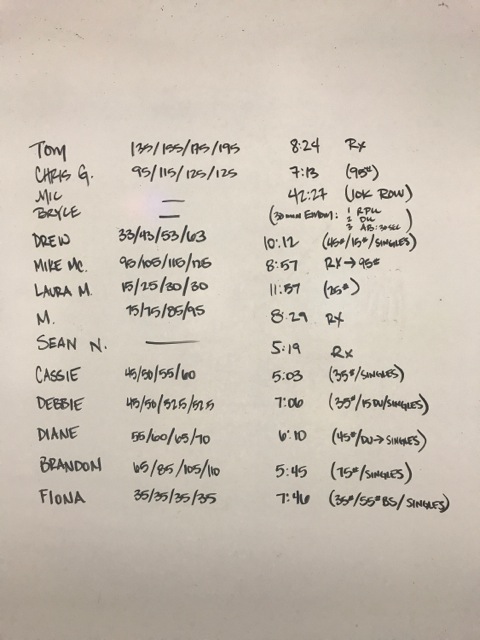 TOM 135/155/175/195 8:24 RX
CHRIS G. 95/115/125/125 7:13 (95#)
MIC — 42:27 (10K ROW)
BRYCE — (30 MIN EMOM: 1 RPU 2 DU 3 AB :30 SEC)
DREW 33/43/53/63 10:12 (45#/15#/SINGLES)
MIKE MC. 95/105/115/125 8:57 RX→95#
LAURA M. 15/25/30/30 11:57 (25#)
M. 75/75/85/95 8:29 RX
SEAN N. — 5:19 RX
CASSIE 45/50/55/60 5:03 (35#/SINGLES)
DEBBIE 45/50/52.5/52.5 7:06 (35#/15 DU/SINGLES)
DIANE 55/60/65/70 6:10 (45#/DU→SINGLES)
BRANDON 65/85/105/110 5:45 (75#/SINGLES)
FIONA 35/35/35/35 7:46 (35#/55# BS/SINGLES)